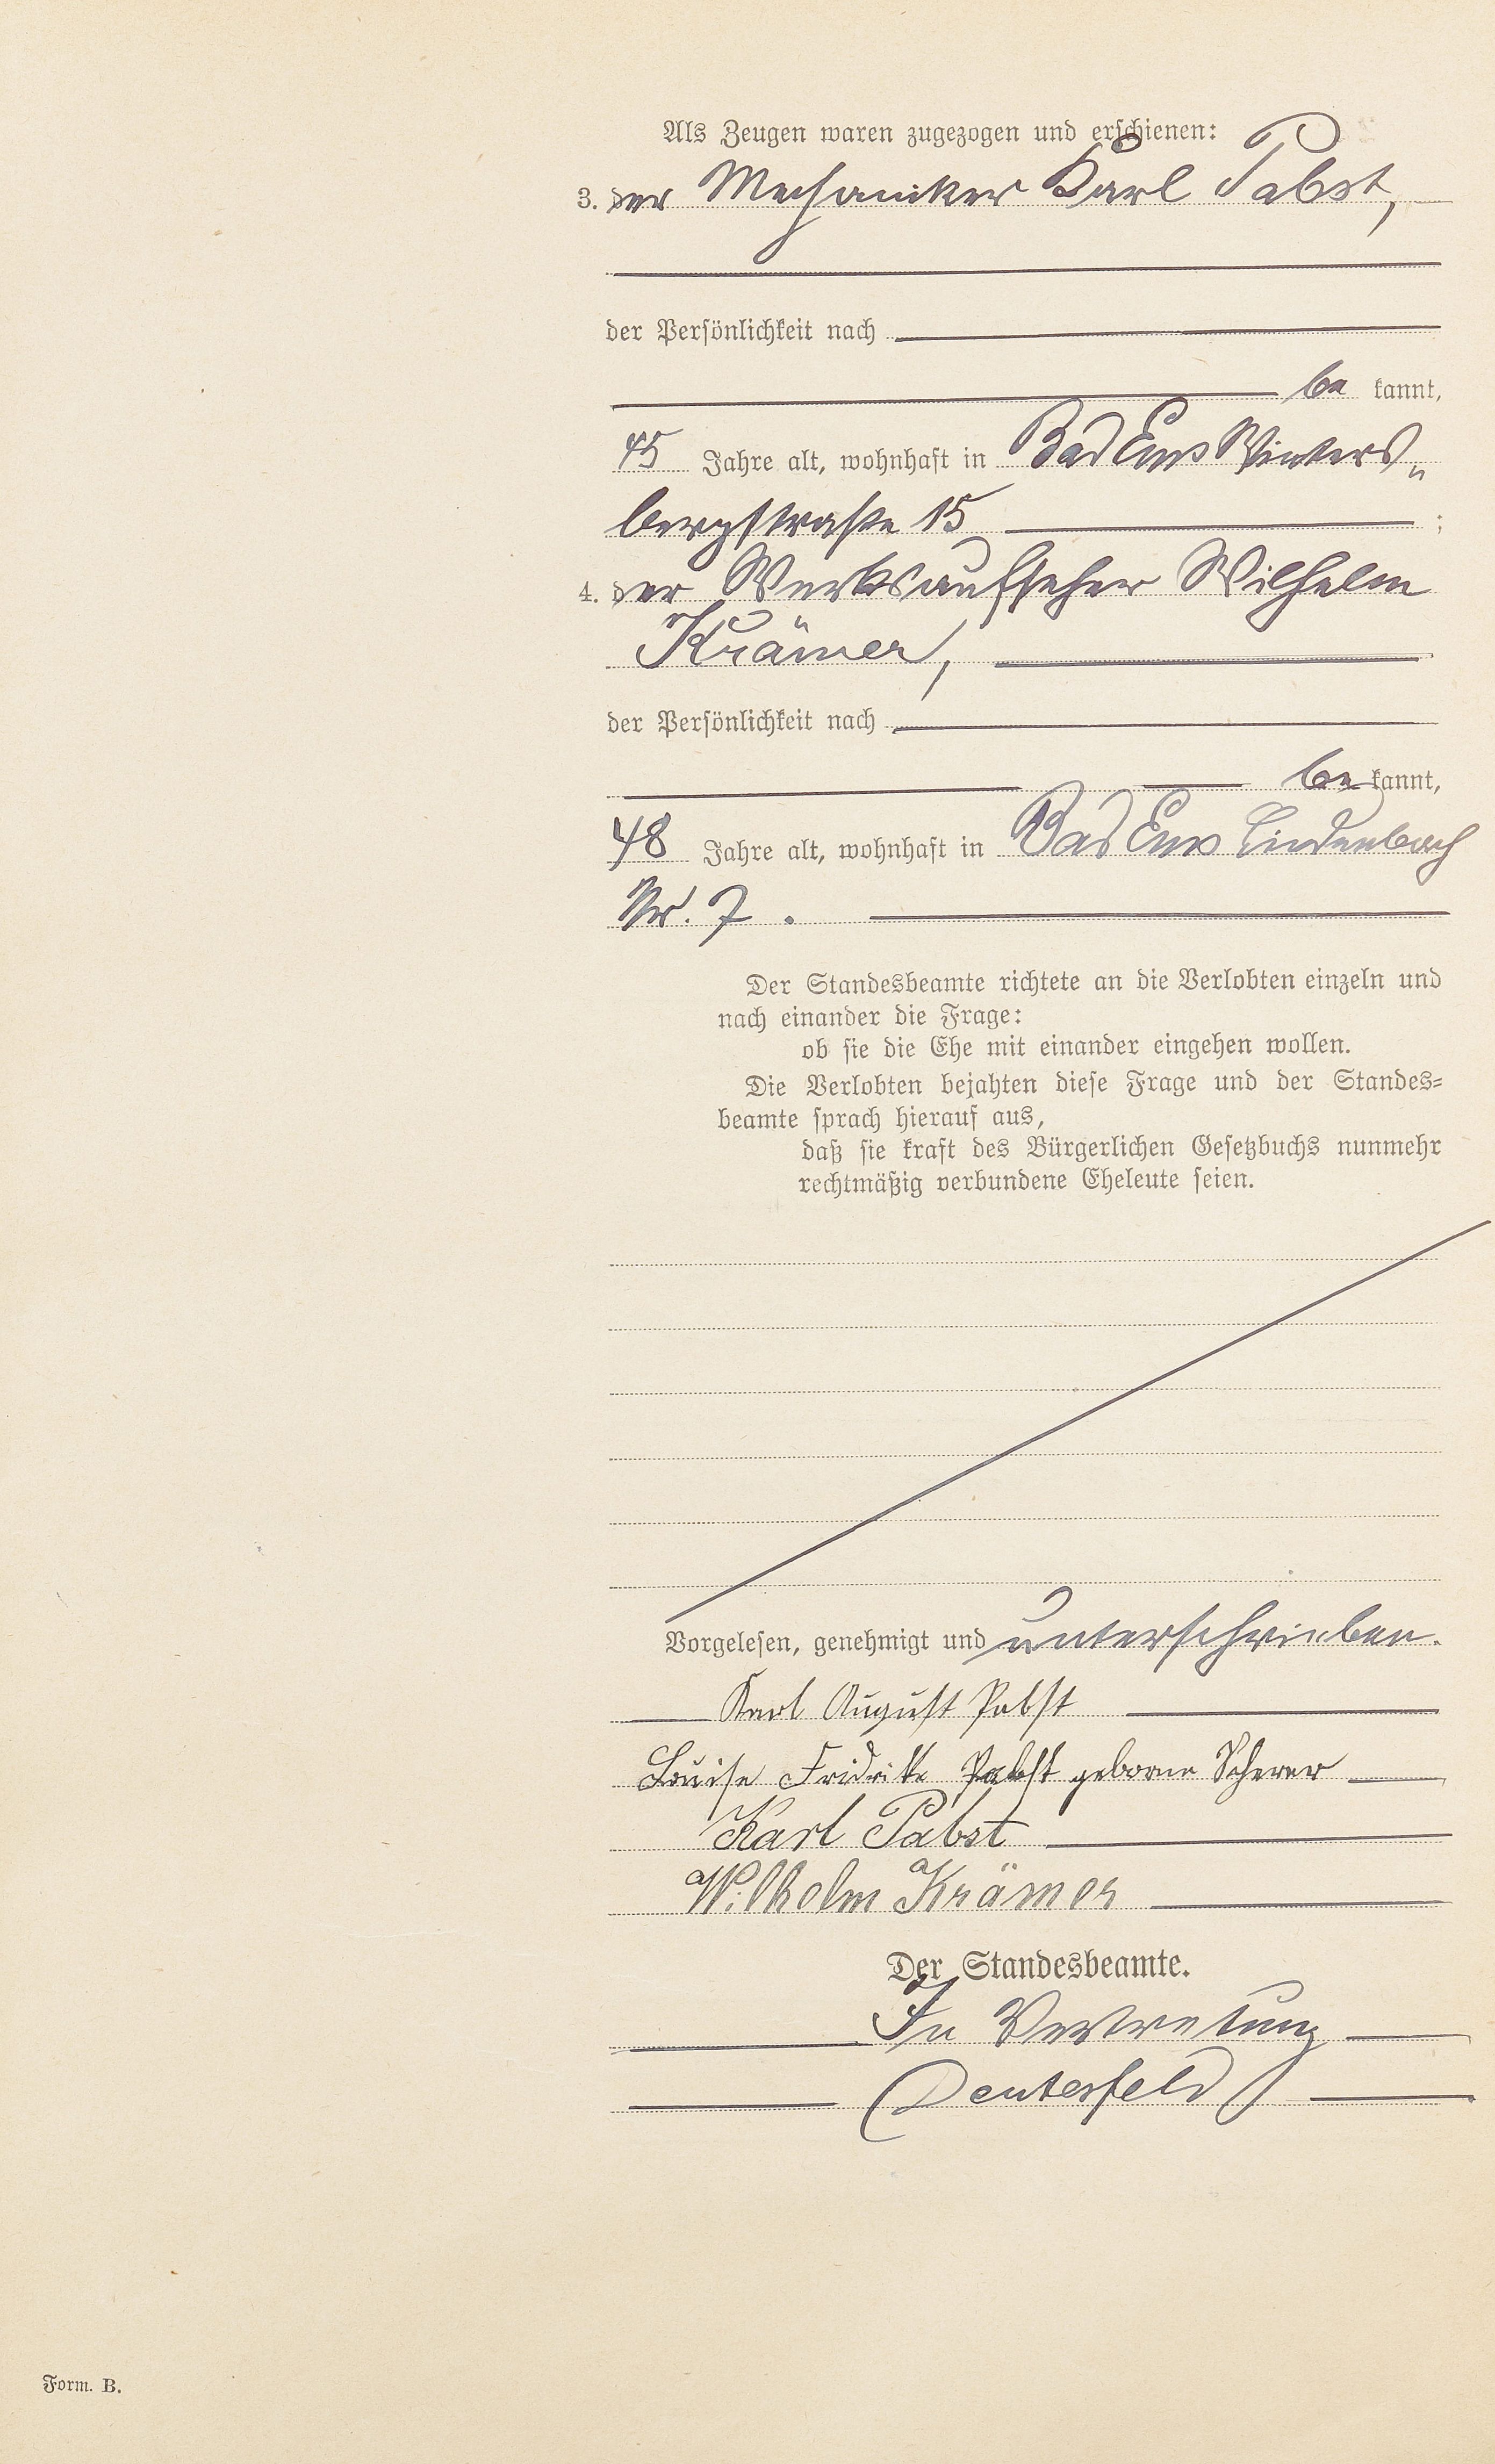 Als Zeugen waren zugezogen und erschienen:
3. der Mechaniker Karl Pabst,
der Persönlichkeit nach
be kannt,
45 Jahre alt, wohnhaft in Bad Ems Winters„
bergstraße 15 ;
4. der Werksaufseher Wilhelm
Krämer,
der Persönlichkeit nach
be kannt,
48 Jahre alt, wohnhaft in Bad Ems Lindenbach
Nr. 7.
Der Standesbeamte richtete an die Verlobten einzeln und
nach einander die Frage:
ob sie die Ehe mit einander eingehen wollen.
Die Verlobten bejahten diese Frage und der Standes=
beamte sprach hierauf aus,
daß sie kraft des Bürgerlichen Gesetzbuchs nunmehr
rechtmäßig verbundene Eheleute seien.
Vorgelesen, genehmigt und unterschrieben.
Karl August Pabst
Louise Fridrike Pabst geborne Scherer
Karl Pabst
Wilhelm Krämer
Der Standesbeamte.
In Vertretung
Deutesfeld
Form. B.